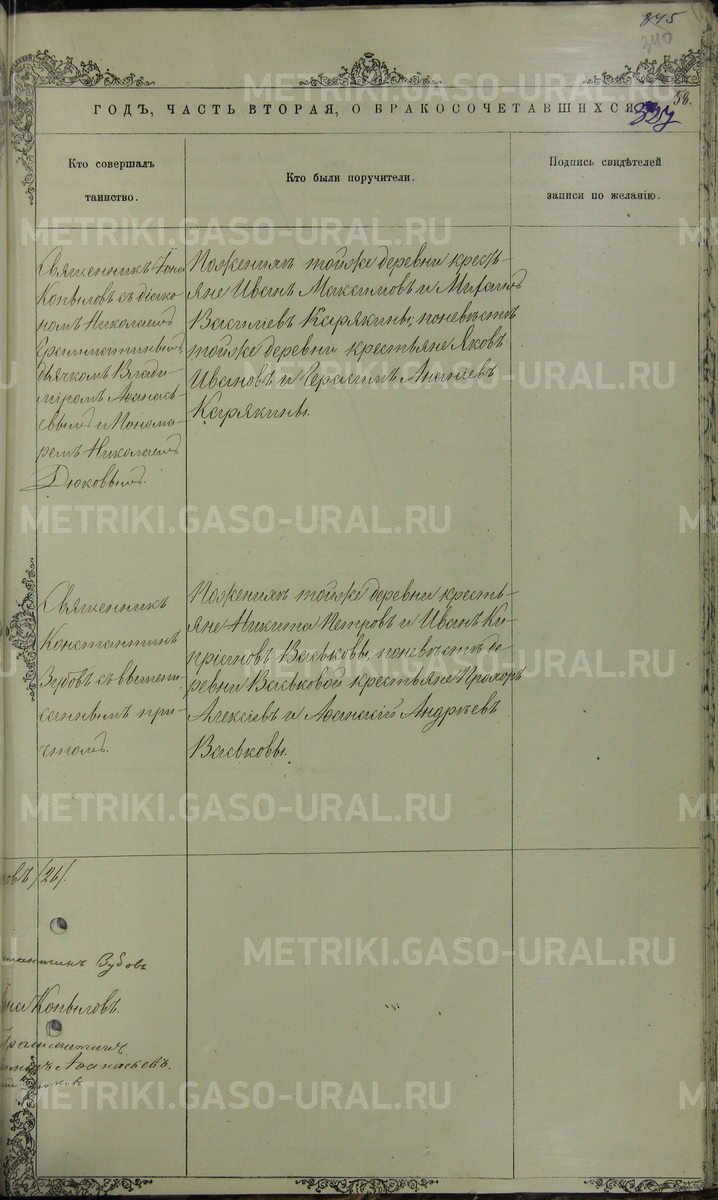 345
340
58.
ГОДЪ, ЧАСТЬ ВТОРАЯ, О БРАКОСОЧЕТАВШИХСЯ
Кто совершалъ
таинство.
Кто были поручители.
Подпись свидѣтелей
записи по желанію.
Священникъ Іона
Копыловъ съ діако-
номъ Николаемъ
Грамматинымъ
дьячкомъ Влади-
міромъ Аѳанась-
евымъ и Понома-
ремъ Николаемъ
Дюковымъ.
По женихѣ тойже деревни кресть-
яне Иванъ Максимовъ и Михаилъ
Василіевъ Карякины; по невѣстѣ
тойже деревни крестьяне Яковъ
Ивановъ и Герасимъ Ананіевъ
Карякины.
Священникъ
Константинъ
Зубовъ съ вышепи-
саннымъ при-
чтомъ.
По женихѣ тойже деревни кресть-
яне Никита Петровъ и Иванъ Ки-
пріановъ Васьковы, по невѣстѣ де-
ревни Васьковой крестьяне Прохоръ
Алексѣевъ и Аѳанасій Андреевъ
Васьковы.
овъ /26/.
стантинъ Зубовъ
Іона Копыловъ.
Грамматинъ
Аѳанасьевъ.
METRIKI.GASO-URAL.RU